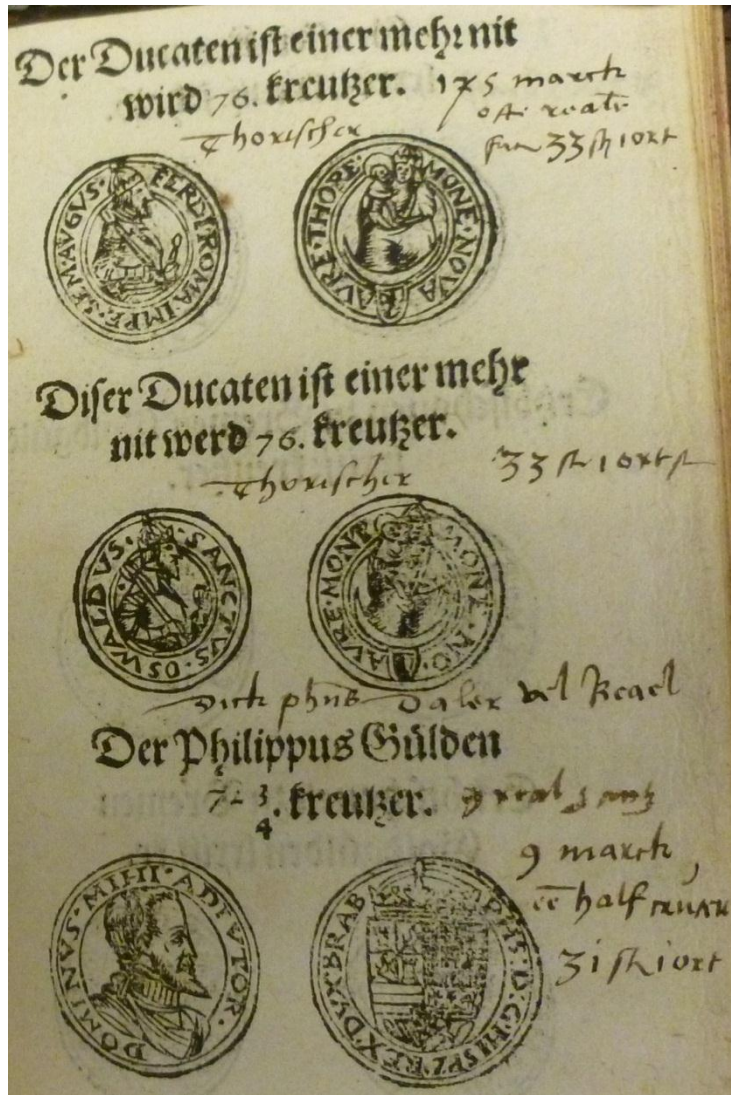 Der Ducaten ist einer mehr nit
wird 76. kreutzer.
march
Thorischer
33 ort
FERDI·ROMA·IMPE·SEM·AVGVS·
MONE·NOVA·AVRE·THORE·
Diser Ducaten ist einer mehr
nit werd 76. kreutzer.
Thorischer
33
SANCTVS·OSWALDVS·
MONE·NO·AVRE·MONT
Daler vel Reael
Der Philippus Gülden
72 3/4. kreutzer.
9 march
half
31 ort
DOMINVS·MIHI·ADIVTOR·
PHS·D:G·HISPZ·REX·DVX·BRAB